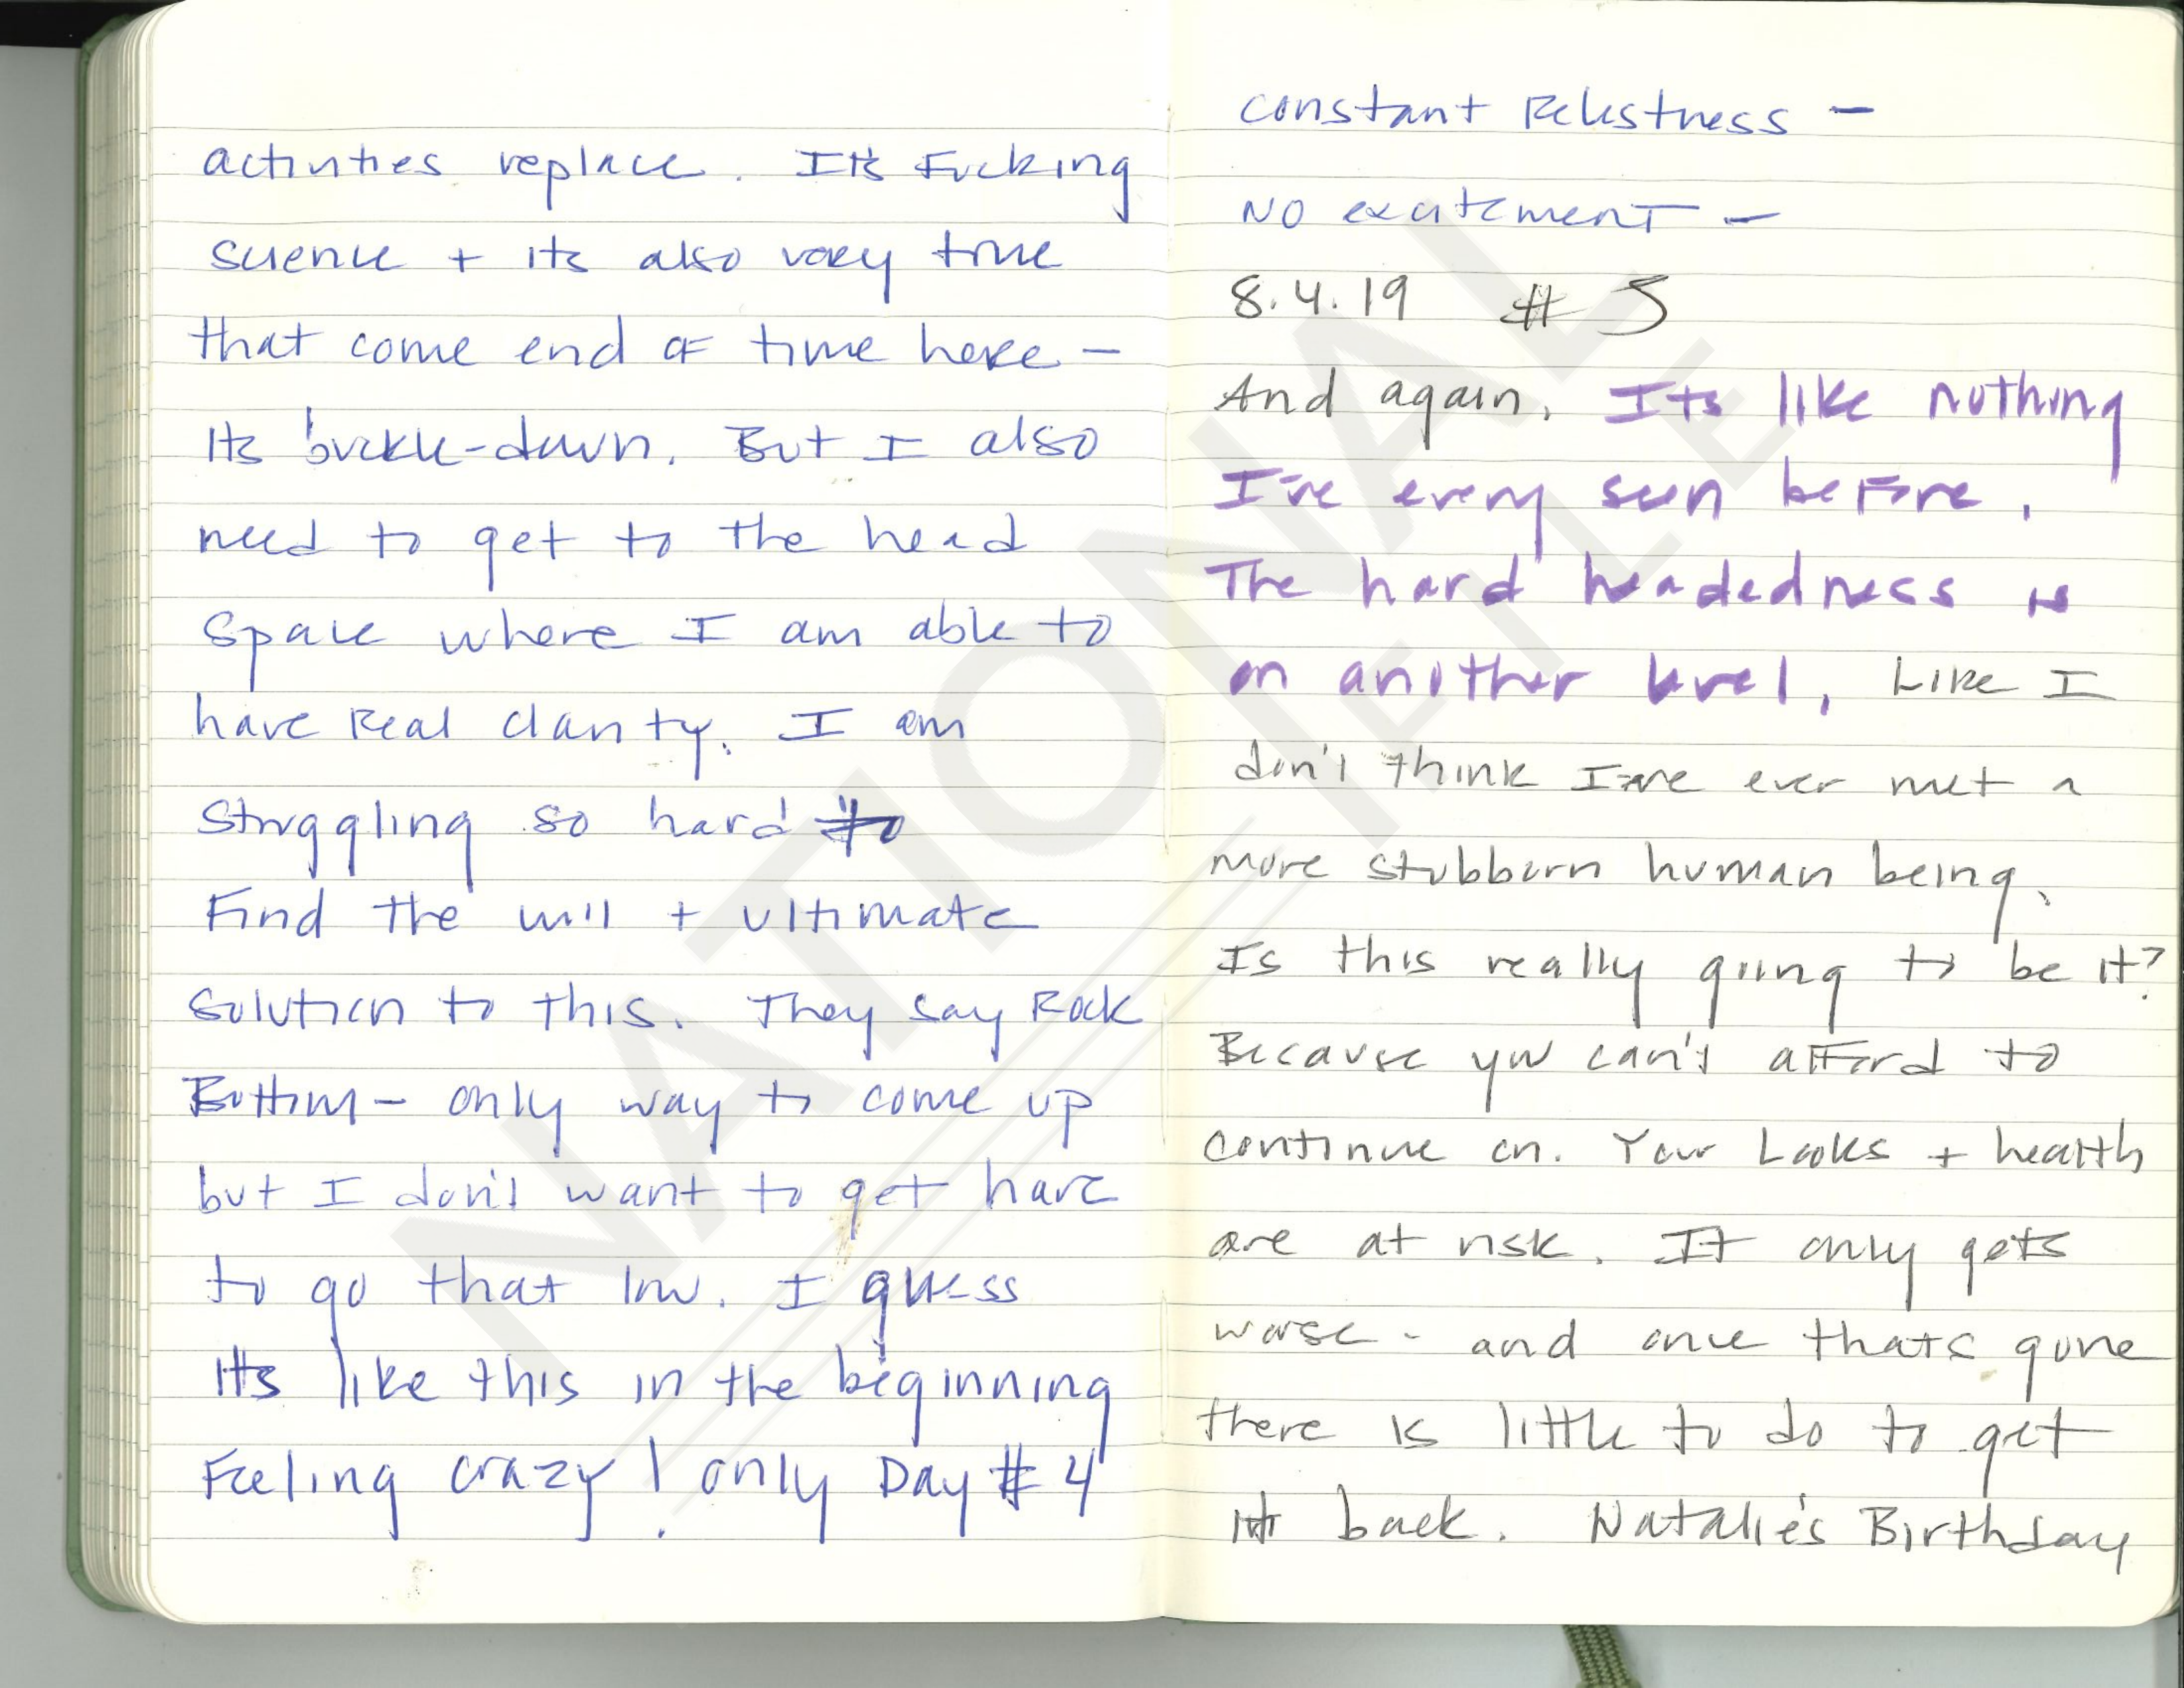 activities replace. It's Fucking
science + its also very true
that come end of time here -
Its buckle-down. But I also
need to get to the head
space where I am able to
have Real clarity. I am
struggling so hard to
Find the will + ultimate
solution to this. They say Rock
Bottom - only way to come up
but I don't want to get have
to go that low. I guess
Its like this in the beginning
Feeling crazy! only Day # 4
constant
NO excitement -
8.4.19 # 5
And again. Its like nothing
I've every seen before.
The hard headedness is
on another level, Like I
don't think I've ever met a
more stubborn human being.
Is this really going to be it?
Because you can't afford to
continue on. Your Looks + health
are at risk. It only gets
worse - and once thats gone
there is little to do to get
it back. Natalie's Birthday
NATIONAL
FILE